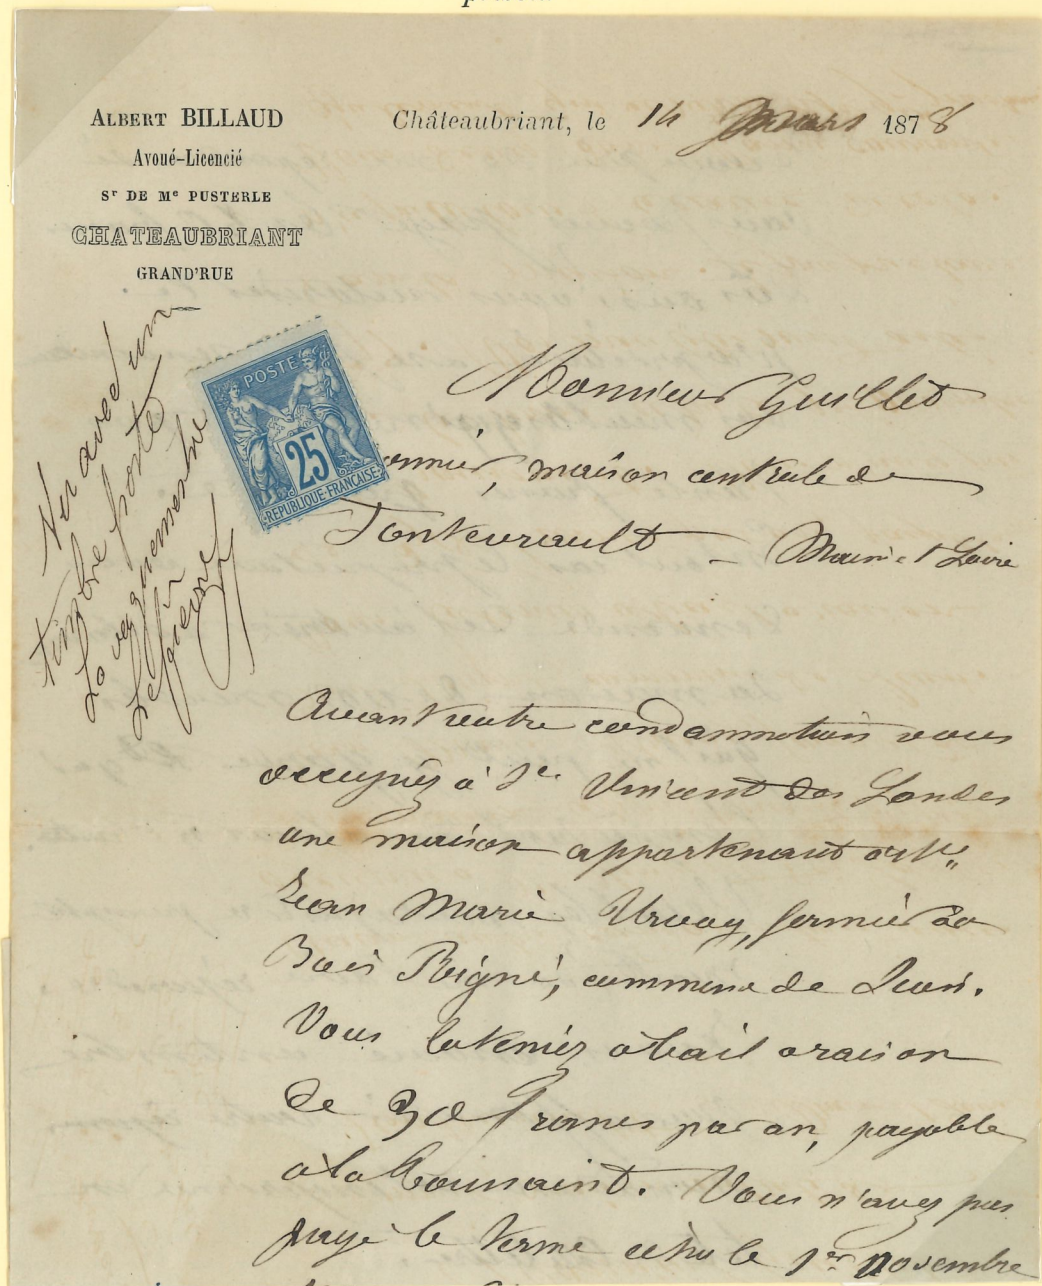 ALBERT BILLAUD
Avoué-Licencié
Sr DE Me PUSTERLE
CHATEAUBRIANT
GRAND'RUE
Châteaubriant, le 14 mars 1878
Vu avec un
timbre poste
Le
POSTE
25
REPUBLIQUE FRANÇAISE
Monsieur Guillet
maison centrale de
Fontevrault – Maine & Loire
Avant votre condamnation vous
occupiez à St Vincent des Landes
une maison appartenant à Mr
Jean Marie Urvoy, fermier au
Bois Péigné, commune de
Vous la teniez à bail à raison
de 30 francs par an, payable
à la Toussaint. Vous n'avez pas
payé le terme échu le 1er novembre